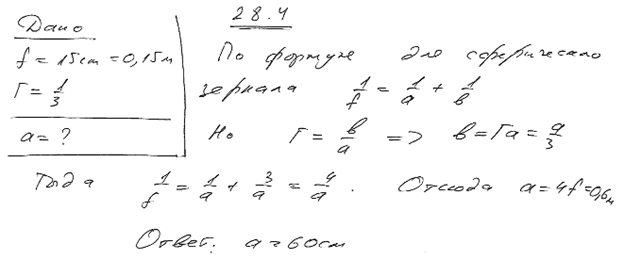 28.4
Дано
f = 15см = 0,15м
Г = 1/3
a = ?
По формуле для сферического
зеркала 1/f = 1/a + 1/b
Но Г = b/a => b = Га = a/3
Тогда 1/f = 1/a + 3/a = 4/a. Отсюда a = 4f = 0,6м
Ответ: a = 60см